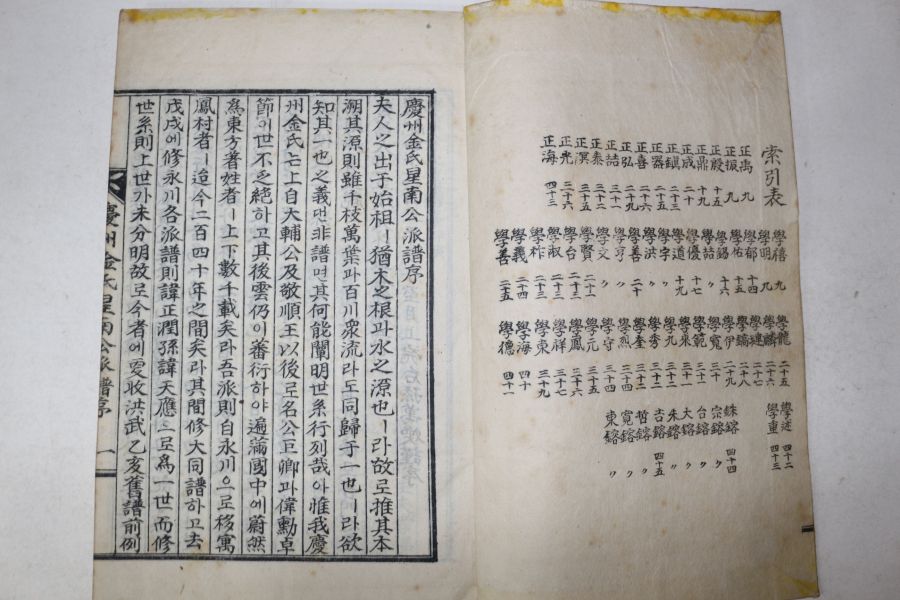 索引表
正禹 九
正振 九
正殷 十五
正鼎 十九
正成 二十
正鎭 二十三
正器 二十五
正喜 二十六
正弘 二十九
正詰 三十一
正泰 三十二
正溟 三十五
正光 三十六
正海 四十三
學禧 九
學明 九
學郁 十四
學佑 十五
學錫 十六
學詰 〃
學優 十七
學道 十九
學宇 〃
學洪 〃
學善 二十
學亨 〃
學文 〃
學賢 二十一
學台 二十二
學淑 二十三
學祚 〃
學義 二十四
學善 二十五
學龍 二十五
學麟 二十六
學建 二十七
學鎬 二十八
學伊 二十九
學寬 三十
學範 三十一
學來
學九 〃
學秀 〃
學奎 三十二
學烈 三十三
學守 三十四
學元 三十五
學鳳 三十六
學祥 三十七
學東 三十九
學海 四十
學德 四十一
學述 四十二
學重 四十三
銖鎔 四十四
宗鎔 〃
台鎔 〃
大鎔 〃
朱鎔 〃
吉鎔 四十五
哲鎔 〃
寬鎔 〃
東鎔 〃
慶州金氏星南公派譜序
夫人之出于始祖ㅣ猶木之根과水之源也ㅣ라故로推其本
溯其源則雖千枝萬葉과百川衆流라도同歸于一也ㅣ라欲
知其一也之義댄非譜며其何能闡明世系行列哉아惟我慶
州金氏는上自大輔公及敬順王以後로名公巨卿과偉勳卓
節이世不乏絶하고其後雲仍이蕃衍하야遍滿國中에蔚然
爲東方著姓者ㅣ上下數千載矣라吾派則自永川으로移寓
鳳村者ㅣ迨今二百四十年之間矣라其間修大同譜하고去
戊戌에修永川各派譜則諱正潤孫諱天應으로爲一世而修
世系則上世가未分明故로今者에更收洪武乙亥舊譜前例
慶州金氏星南公派譜序 一